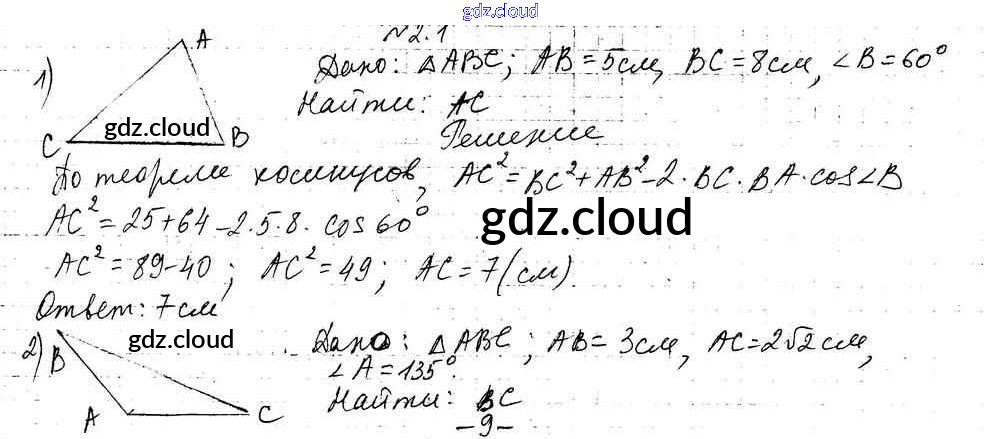 gdz.cloud
№2.1
1) A Дано: △ABC; AB=5см, BC=8см, ∠B=60°
Найти: AC
C gdz.cloud B Решение
По теореме косинусов, AC²=BC²+AB²-2·BC·BA·cos∠B
AC²=25+64-2·5·8·cos60°
gdz.cloud
AC²=89-40; AC²=49; AC=7(см).
Ответ: 7см
2) B gdz.cloud Дано: △ABC; AB=3см, AC=2√2см,
∠A=135°.
A C Найти: BC
-9-